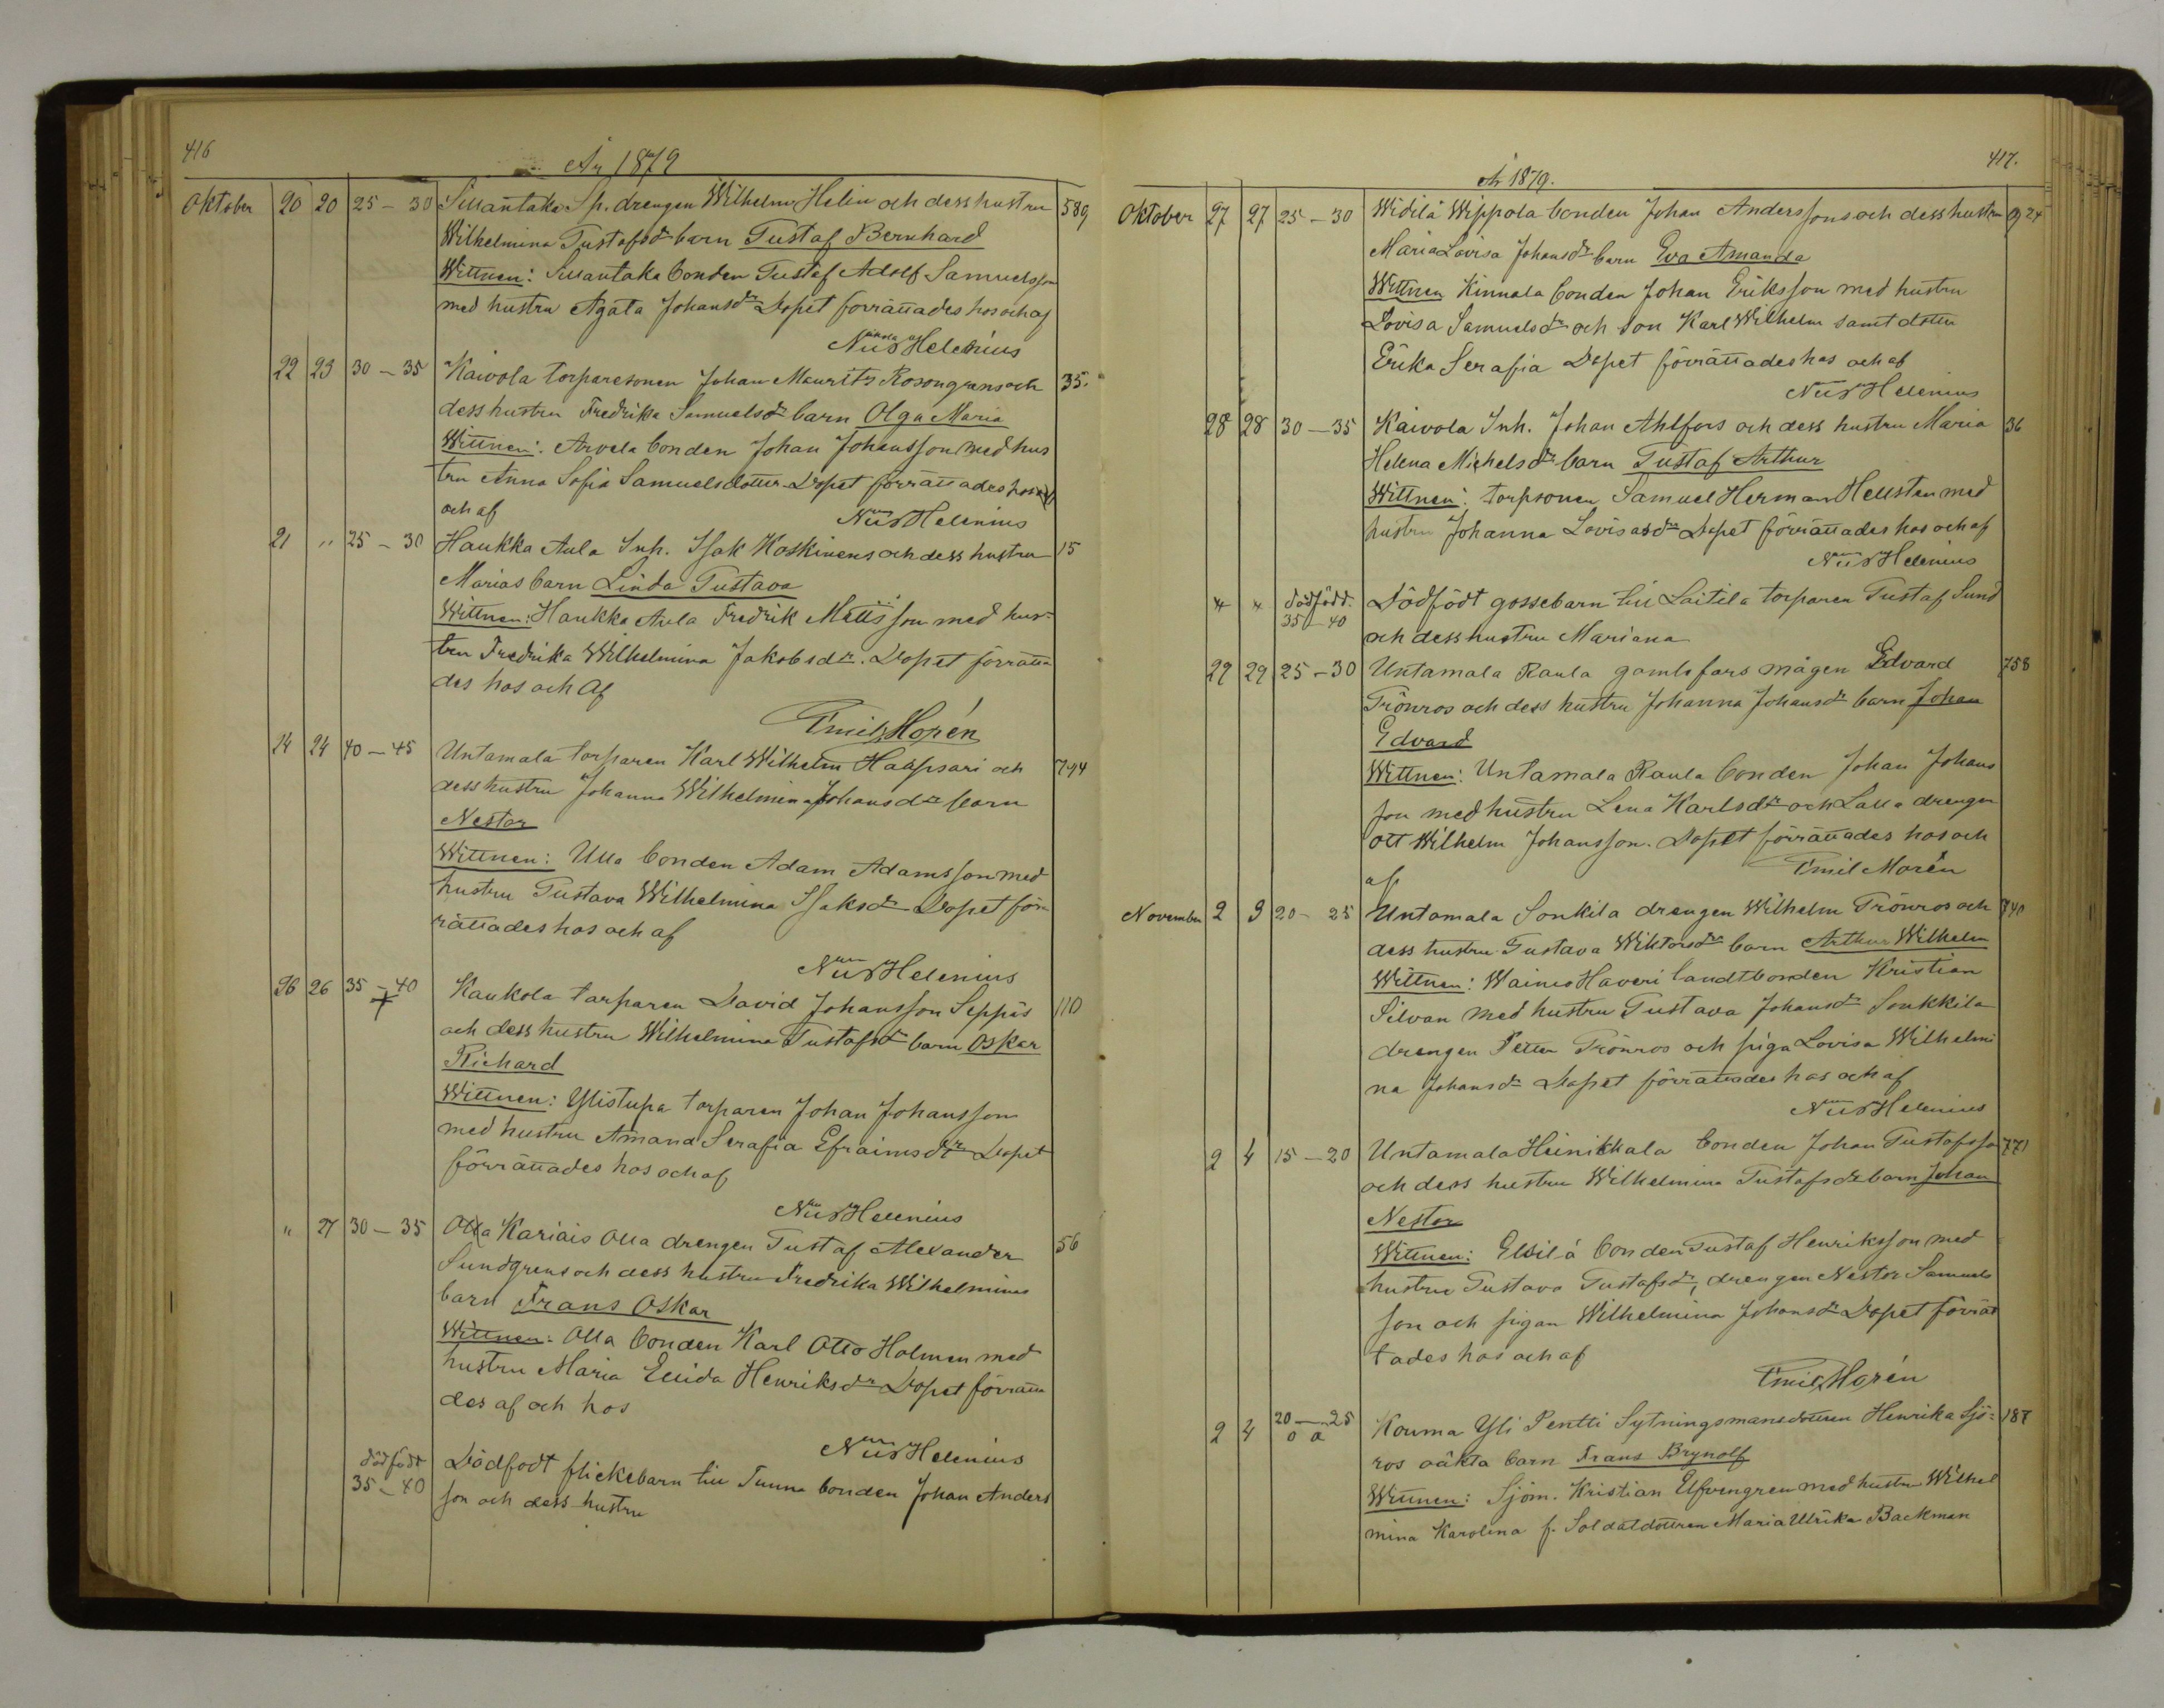 416
År 1879
Oktober 20 20 25–30 Sillantaka Sp. drengen Wilhelm Helin och dess hustru 589
Wilhelmina Gustafsdr barn Gustaf Bernhard
Wittnen: Sillantaka bonden Gustaf Adolf Samuelsson
med hustru Agata Johansdr Dopet förrättades hos och af
Helenius
22 23 30–35 Kaivola torparesonen Johan Maurits Rosengrens och 35.
dess hustru Fredrika Samuelsdr barn Olga Maria
Wittnen: Arvela bonden Johan Johansson med hus
tru Anna Sofia Samuelsdotter Dopet förrättades hos
och af
Helenius
21 " 25–30 Haukka Aula Inh. Isak Koskinens och dess hustru 15
Marias barn Linda Gustava
Wittnen: Haukka Aula Fredrik Mattsson med hus-
tru Fredrika Wilhelmina Jakobsdr. Dopet förrätta
des hos och af
Emil Morén
24 24 40–45 Untamala torparen Karl Wilhelm Haapsari och 794
dess hustru Johanna Wilhelmina Johansdr barn
Nestor
Wittnen: Ulla bonden Adam Adamsson med
hustru Gustava Wilhelmina Isaksdr Dopet för
rättades hos och af
Helenius
26 26 35–40 Kaukola torparen David Johansson Seppäs 110
och dess hustru Wilhelmina Gustafsdr barn Oskar
Richard
Wittnen: Ylistupa torparen Johan Johansson
med hustru Amanda Serafia Efraimsdr Dopet
förrättades hos och af
Helenius
" 27 30–35 Olla Kariais Olla drengen Gustaf Alexander 56
Sundgrens och dess hustru Fredrika Wilhelminas
barn Frans Oskar
Wittnen: Olla bonden Karl Otto Holmen med
hustru Maria Henriksdr Dopet förrätta
des af och hos
Helenius
dödfödt
35–40 Dödfodt flickebarn till Tunna bonden Johan Anders
son och dess hustru
417.
År 1879.
Oktober 27 27 25–30 Widilä Wippola bonden Johan Anderssons och dess hustru 924
Maria Lovisa Johansdr barn Eva Amanda
Wittnen Kinnala bonden Johan Eriksson med hustru
Lovisa Samuelsdr och son Karl Wilhelm samt dotter
Erika Serafia Dopet förrättades hos och af
Helenius
28 28 30–35 Kaivola Inh. Johan Ahlfors och dess hustru Maria 36
Helena Michelsdr barn Gustaf Arthur
Wittnen: torpsonen Samuel Herman Hellsten med
hustru Johanna Lovisasdr Dopet förrättades hos och af
Helenius
dödfödt.
35–40 Dödfödt gossebarn till Laitila torparen Gustaf Sund
och dess hustru Mariana
29 29 25–30 Untamala Raula gamlefars mågen Edvard 758
Grönros och dess hustru Johanna Johansdr barn Johan
Edvard
Wittnen: Untamala Raula bonden Johan Johans
son med hustru Lena Karlsdr och Lalla drengen
Ott Wilhelm Johansson. Dopet förrättades hos och
af
Emil Morén
November 2 3 20–25 Untamala Sonkila drengen Wilhelm Grönros och 740
dess hustru Gustava Wiktorsdr barn Arthur Wilhelm
Wittnen: Wainio Haveri landtbonden Kristian
Silvan med hustru Gustava Johansdr Sonkkila
drengen Petter Grönros och piga Lovisa Wilhelmi
na Johansdr Dopet förrättades hos och af
Helenius
2 4 15–20 Untamala Heinikkala bonden Johan Gustafsson 771
och dess hustru Wilhelmina Gustafsdr barn Johan
Nestor
Wittnen: bonden Gustaf Henriksson med
hustru Gustava Gustafsdr, drengen Nestor Samuels
son och pigan Wilhelmina Johansdr Dopet förrät
tades hos och af
Emil Morén
2 4 20–25 Kouma Yli Pentti Sytningsmansdottren Henrika Sjö= 187
o ä
ros oäkta barn Frans Brynolf
Wittnen: Sjöm. Kristian Elfvengren med hustru Wilhel
mina Karolina f. Soldatdottren Maria Ulrika Backman